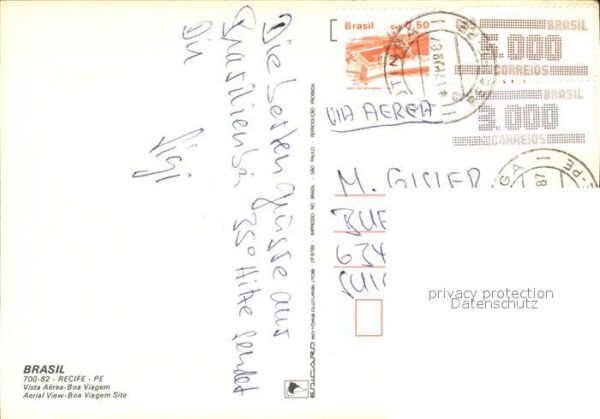 Die besten Grüsse aus
Brasilien bei 35° Hitze sendet
Dir
Sigi
BRASIL
700-82 - RECIFE - PE
Vista Aérea-Boa Viagem
Aerial View-Boa Viagem Site
EDICARD EDITORA CULTURAL LTDA. CP 8752 IMPRESSO NO BRASIL - SÃO PAULO - REPRODUÇÃO PROIBIDA
Brasil 0,50
BRASIL
5.000
CORREIOS
BRASIL
3.000
CORREIOS
VIA AEREA
M. GISLER
634
privacy protection
Datenschutz